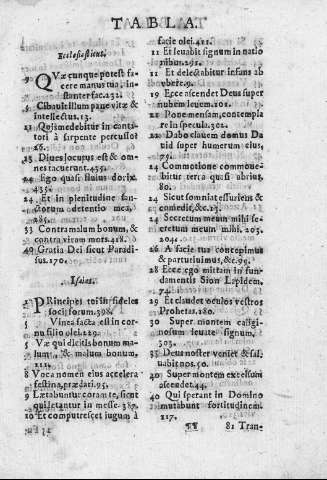 TABLA
Ecclesiasticus.
9 QVæ cunque potest fa-
cere manus tua, in-
stanter fac. 232.
5 Cibabit illum pane vitæ &
intellectus. 13.
21 Qui medebitur in canta-
tori à serpente percusso
26.
25 Dives locutus est & om-
nes tacuerunt. 435.
24 Ego quasi fluius dorix.
435.
24 Et in plenitudine san-
ctorum detentio mea,
285.
33 Contra malum bonum, &
contra viram mors. 418.
40 Gratia Dei sicut Paradi-
sus. 170.
Isaias.
1 PRincipes tui infideles
socij furum. 398.
5 Vinea facta est in cor-
nu filio olei. 129.
5 Væ qui dicitis bonum ma-
lum, & malum bonum,
8 Voca nomen eius accelera
festina, prædari. 95.
9 Lætabuntur coram te, sicut
qui lætantur in messe. 387.
9 Et computrescet iugum à
facie olei. 411.
11 Et leuabit signum in natio
nibus. 291.
11 Et delectabitur infans ab
vbere. 9.
19 Ecce ascendet Deus super
nubem leuem. 101.
21 Pone mensam, contempla
re in specula. 302.
22 Dabo clauem domus Da
uid super humerum eius,
74.
24 Commotione commoue-
bitur terra quasi ubrius.
80.
24 Sicut somniat esuriens &
comedit, &c. 13.
24 Secretum meum mihi se-
cretum meum mihi. 203.
204.
26 A facie tua concepimus
& parturiuimus, &c. 99.
28 Ecce ego mittam in fun-
damentis Sion Lapidem.
74.
29 Et claudet oculos vestros
Prophetas. 180.
30 Super montem caligi-
nosum leuate signum,
303.
35 Deus noster veniet & sal-
uabit nos. 50.
40 Super montem excelsum
ascende. 44.
40 Qui sperant in Domino
mutabunt fortitudinem.
217.
¶¶ 81 Tran-